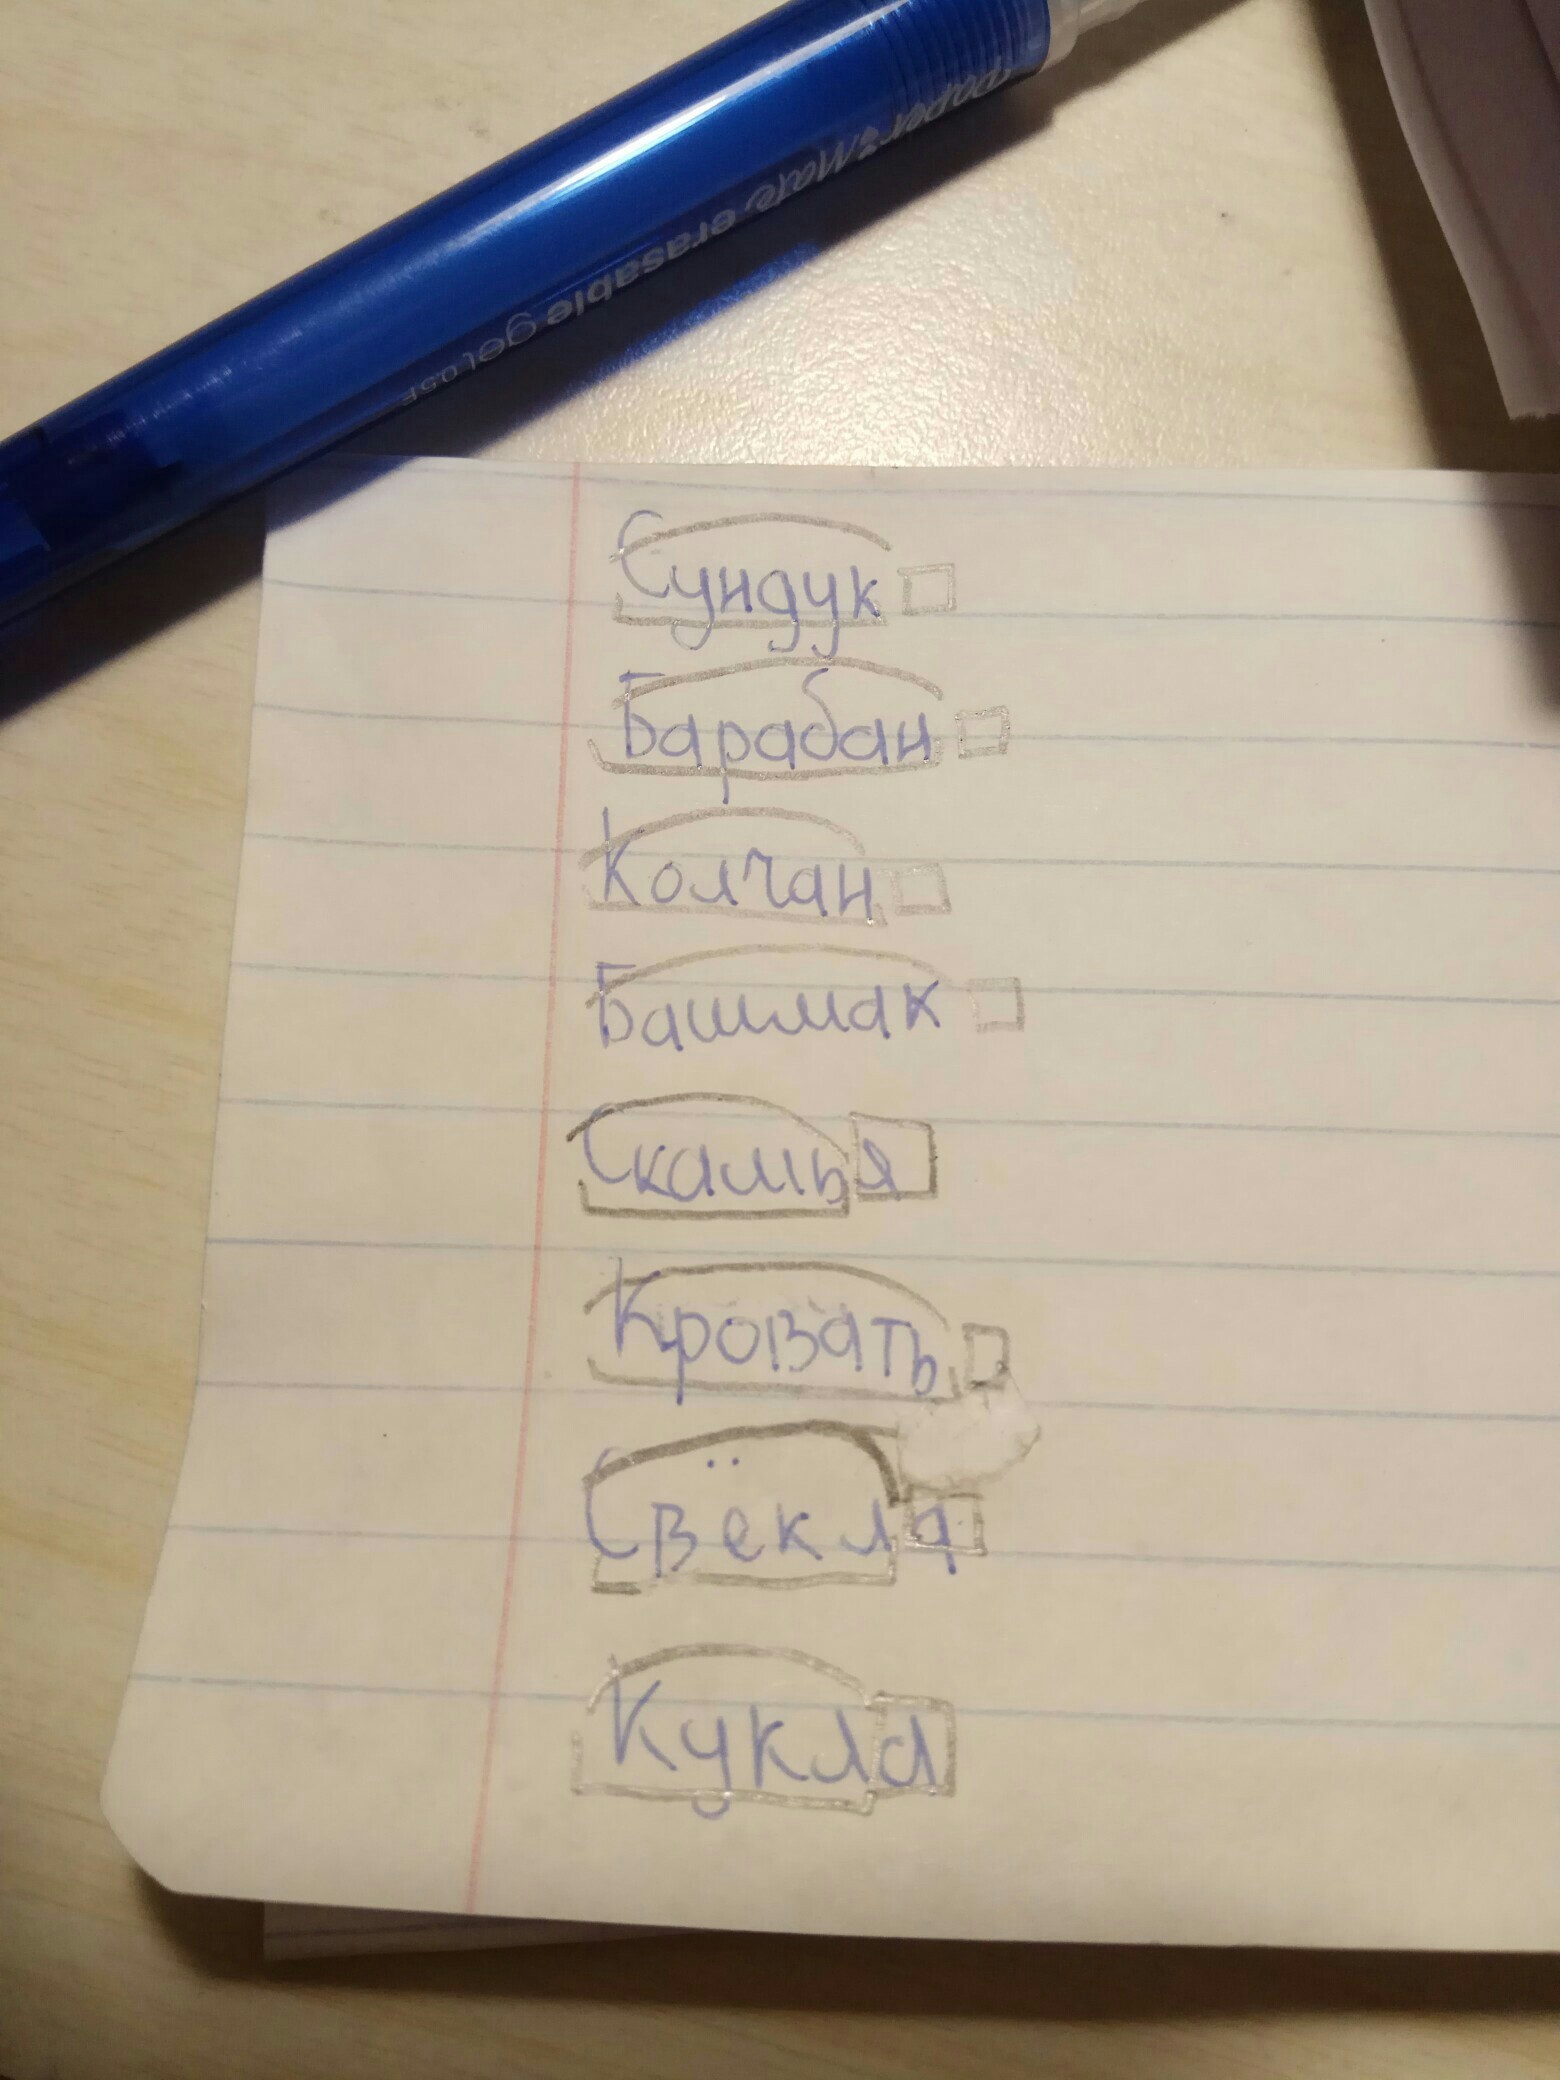 Paper Mate. erasable gel 0.5F
Сундук
Барабан
Колчан
Башмак
Скамья
Кровать
Свёкла
Кукла